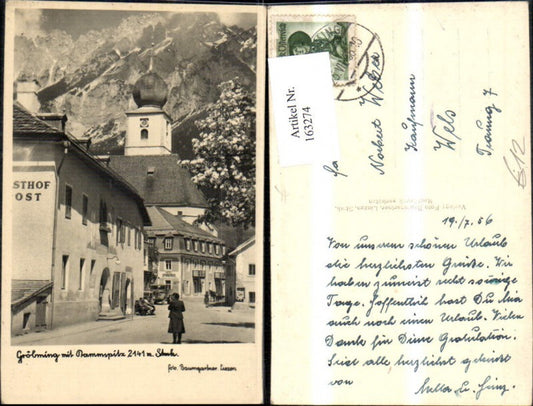 STHOF
OST
Gröbming mit Kammspitz 2141 m. Stmk.
Fot. Baumgartner Liezen
Artikel Nr.
163274
Fa
Norbert
Kaufmann
Wels
Traung 7
Verlag Foto Baumgartner, Liezen, Stmk.
19./7. 56
Von unserem schönen Urlaub
die herzlichsten Grüße. Wir
haben zumeist recht sonnige
Tage. Hoffentlich hast Du
auch noch einen Urlaub. Vielen
Dank für Deine Gratulation.
Seid alle herzlichst gegrüßt
von
u. Heinz.